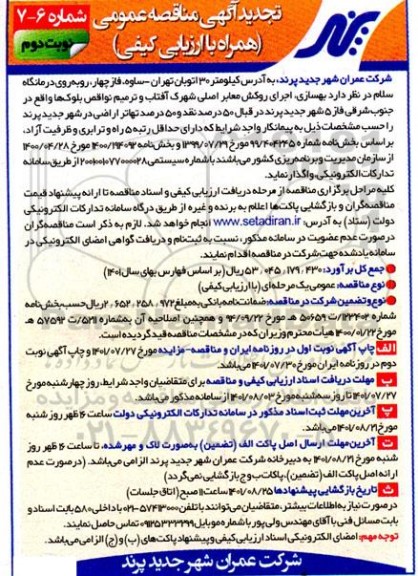 تجدید آگهی مناقصه عمومی
(همراه با ارزیابی کیفی)
شماره ۶-۷
نوبت دوم
پرند
شرکت عمران شهر جدید پرند، به آدرس کیلومتر ۳۰ اتوبان تهران - ساوه، فاز چهار، روبه‌روی درمانگاه
سلام در نظر دارد بهسازی، اجرای روکش معابر اصلی شهرک آفتاب و ترمیم نواقص بلوک‌ها واقع در
جنوب شرقی فاز ۵ شهر جدید پرند در قبال ۵۰ درصد نقد و ۵۰ درصد تهاتر اراضی در شهر جدید پرند
را حسب مشخصات ذیل به پیمانکار واجد شرایط که دارای حداقل رتبه ۵ راه و ترابری و ظرفیت آزاد،
براساس بخش‌نامه شماره ۹۹/۴۰۴۲۳۵ مورخ ۱۳۹۹/۰۷/۲۹ و بخش‌نامه ۱۴۰۰/۲۱۴۰۹۲ مورخ ۱۴۰۰/۰۴/۲۸
از سازمان مدیریت و برنامه‌ریزی کشور می‌باشند با شماره سیستمی ۲۰۰۱۰۰۱۰۷۷۰۰۰۰۲۸ از طریق سامانه
تدارکات الکترونیکی، واگذار نماید.
کلیه مراحل برگزاری مناقصه از مرحله دریافت ارزیابی کیفی و اسناد مناقصه تا ارائه پیشنهاد قیمت
مناقصه‌گران و بازگشایی پاکت‌ها اعلام به برنده و غیره از طریق درگاه سامانه تدارکات الکترونیکی
دولت (ستاد) به آدرس: www.setadiran.ir انجام خواهد شد. لازم به ذکر است مناقصه‌گران
درصورت عدم عضویت در سامانه مذکور، نسبت به ثبت‌نام و دریافت گواهی امضای الکترونیکی در
سامانه یاد شده جهت شرکت در مناقصه اقدام نمایند.
جمع کل برآورد: ۵۳،۰۴۵،۱۷۹،۴۳۰ ریال (بر اساس فهارس بهای سال ۱۴۰۱)
نوع مناقصه: عمومی یک مرحله‌ای (با ارزیابی کیفی)
نوع و تضمین شرکت در مناقصه: ضمانت‌نامه بانکی به مبلغ ۲،۶۵۲،۲۵۸،۹۷۲ ریال حسب بخش‌نامه
شماره ۱۲۳۴۰۲/ت ۵۰۶۵۹ هـ مورخ ۹۴/۰۹/۲۲ و همچنین اصلاحیه آن به شماره ۵۲۱۱/ت ۵۷۵۹۲ هـ
مورخ ۱۴۰۰/۰۱/۲۲ هیأت محترم وزیران که در مشخصات مناقصه قید گردیده است.
الف چاپ آگهی نوبت اول در روزنامه ایران و مناقصه - مزایده مورخ ۱۴۰۱/۰۷/۲۷ و چاپ آگهی نوبت
دوم در روزنامه ایران مورخ ۱۴۰۱/۰۷/۳۰ می‌باشد.
ب مهلت دریافت اسناد ارزیابی کیفی و مناقصه برای متقاضیان واجد شرایط، روز چهارشنبه مورخ
۱۴۰۱/۰۷/۲۷ تا روز سه‌شنبه مورخ ۱۴۰۱/۰۸/۰۳ از سامانه مذکور می‌باشد.
پ آخرین مهلت ثبت اسناد مذکور در سامانه تدارکات الکترونیکی دولت ساعت ۱۶ ظهر روز شنبه
مورخ ۱۴۰۱/۰۸/۲۱ می‌باشد.
ت آخرین مهلت ارسال اصل پاکت الف (تضمین) به‌صورت لاک و مهر شده، تا ساعت ۱۶ ظهر روز
شنبه مورخ ۱۴۰۱/۰۸/۲۱ به دبیرخانه شرکت عمران شهر جدید پرند الزامی می‌باشد. (درصورت عدم
ارائه اصل پاکت الف (تضمین)، پاکات ب و ج بازگشایی نمی‌گردد)
ث تاریخ بازگشایی پیشنهادها ۱۴۰۱/۰۸/۲۵ ساعت ۱۱ صبح (اتاق جلسات)
درصورت نیاز به اطلاعات بیشتر، متقاضیان می‌توانند با تلفن ۵۷۴۱۳۰۰۰-۰۲۱ با داخلی ۵۸۰ بابت اسناد و
بابت مسائل فنی با آقای مهندس ولی‌پور با شماره موبایل ۰۹۱۲۵۳۳۳۲۹۹ تماس حاصل نمایند.
توجه مهم: امضای الکترونیکی اسناد ارزیابی کیفی و پیشنهاد پاکت‌های (ب) و (ج) الزامی می‌باشد.
شرکت عمران شهر جدید پرند